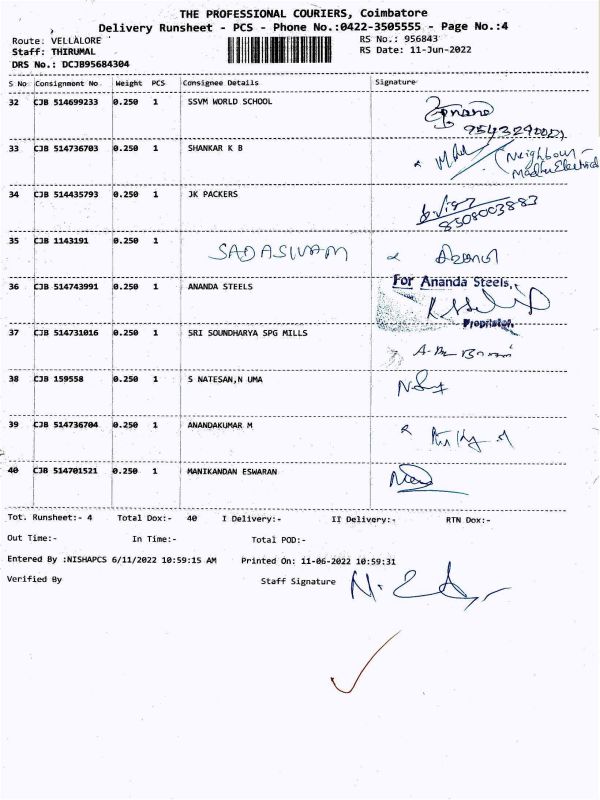 THE PROFESSIONAL COURIERS, Coimbatore
Delivery Runsheet - PCS - Phone No.:0422-3505555 - Page No.:4
Route: VELLALORE
RS No.: 956843
Staff: THIRUMAL
RS Date: 11-Jun-2022
DRS No.: DCJB95684304
S No Consignment No Weight PCS Consignee Details Signature
32 CJB 514699233 0.250 1 SSVM WORLD SCHOOL
33 CJB 514736703 0.250 1 SHANKAR K B
Neighbour -
34 CJB 514435793 0.250 1 JK PACKERS
8508003883
35 CJB 1143191 0.250 1 SADASIVAM
36 CJB 514743991 0.250 1 ANANDA STEELS
For Ananda Steels,
Proprietor.
37 CJB 514731016 0.250 1 SRI SOUNDHARYA SPG MILLS
38 CJB 159558 0.250 1 S NATESAN,N UMA
39 CJB 514736704 0.250 1 ANANDAKUMAR M
40 CJB 514701521 0.250 1 MANIKANDAN ESWARAN
Tot. Runsheet:- 4 Total Dox:- 40 I Delivery:- II Delivery:- RTN Dox:-
Out Time:- In Time:- Total POD:-
Entered By :NISHAPCS 6/11/2022 10:59:15 AM Printed On: 11-06-2022 10:59:31
Verified By Staff Signature